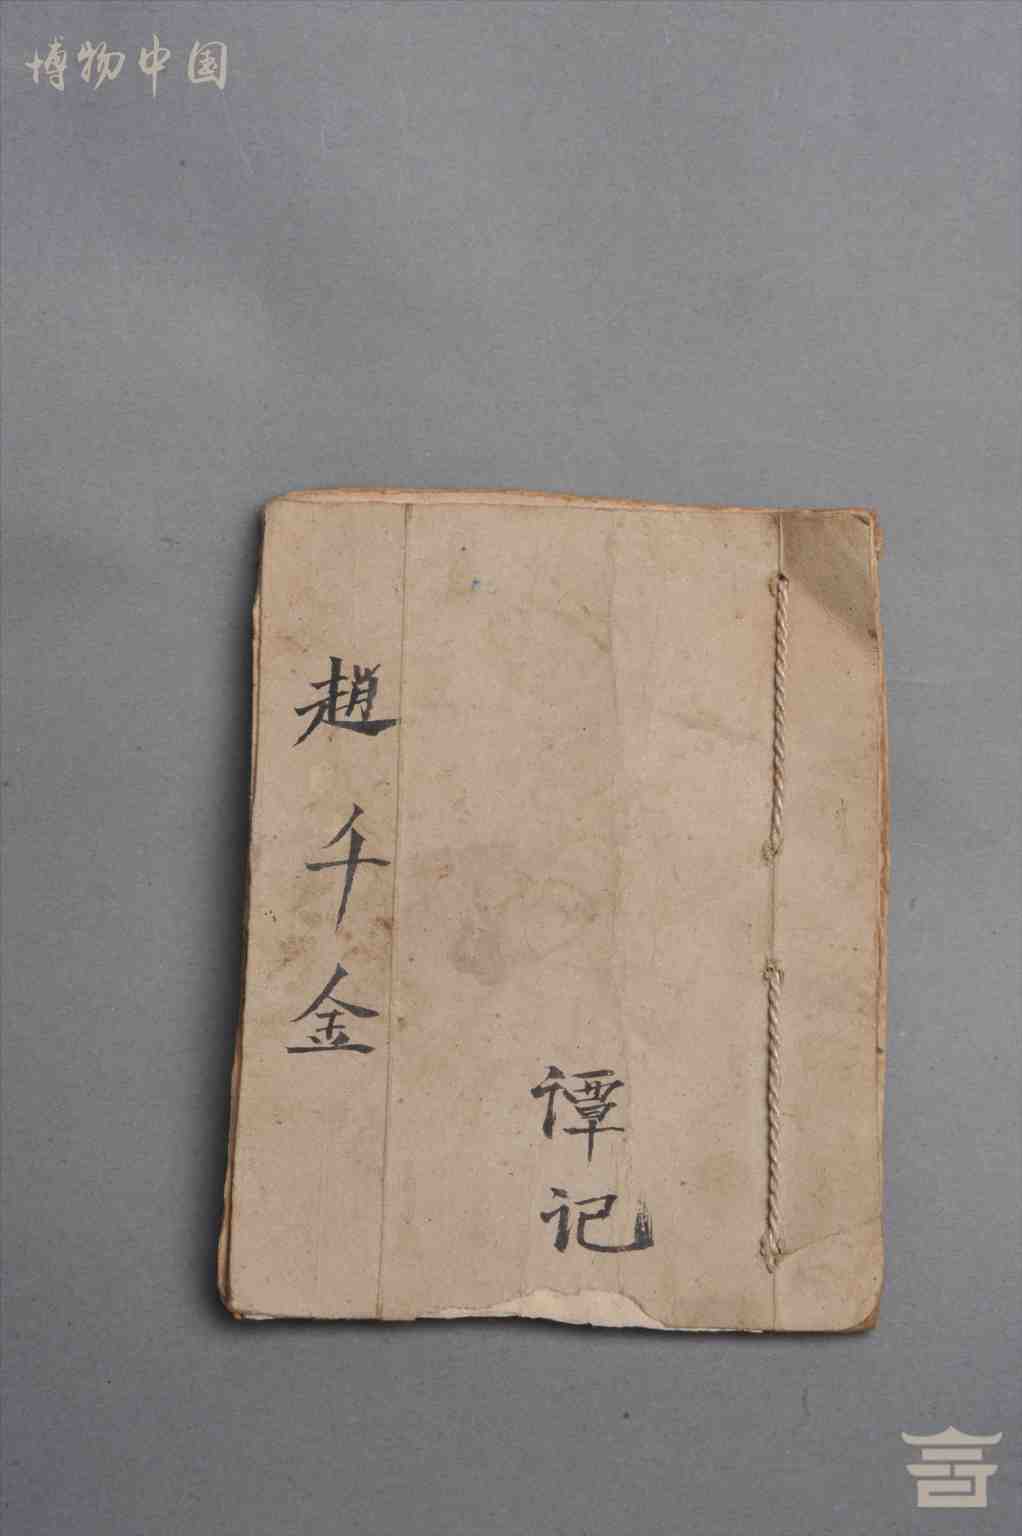 博物中国
趙千金
谭记